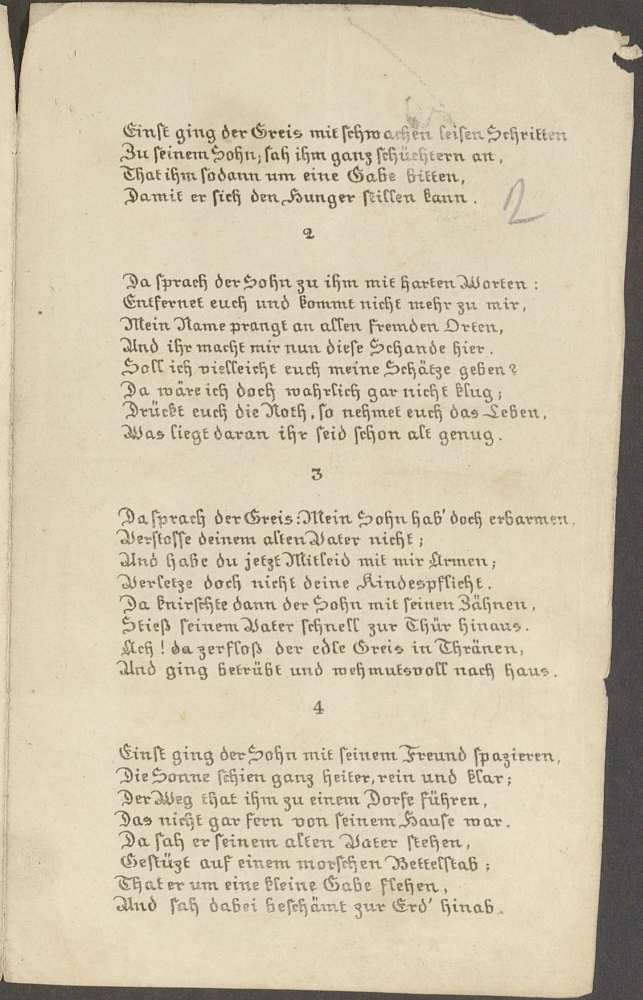 Einst ging der Greis mit schwachen leisen Schritten
Zu seinem Sohn; sah ihm ganz schüchtern an,
That ihm sodann um eine Gabe bitten,
Damit er sich den Hunger stillen kann.
2
2
Da sprach der Sohn zu ihm mit harten Worten:
Entfernet euch und kommt nicht mehr zu mir,
Mein Name prangt an allen fremden Orten,
Und ihr macht mir nun diese Schande hier.
Soll ich vielleicht euch meine Schätze geben?
Da wäre ich doch wahrlich gar nicht klug;
Drückt euch die Noth, so nehmet euch das Leben,
Was liegt daran ihr seid schon alt genug.
3
Da sprach der Greis: Mein Sohn hab' doch erbarmen,
Verstosse deinem alten Vater nicht;
Und habe du jetzt Mitleid mit mir Armen;
Verletze doch nicht deine Kindespflicht.
Da knirschte dann der Sohn mit seinen Zähnen,
Stieß seinem Vater schnell zur Thür hinaus.
Ach! da zerfloß der edle Greis in Thränen,
Und ging betrübt und wehmutsvoll nach haus.
4
Einst ging der Sohn mit seinem Freund spazieren,
Die Sonne schien ganz heiter, rein und klar;
Der Weg that ihm zu einem Dorfe führen,
Das nicht gar fern von seinem Hause war.
Da sah er seinem alten Vater stehen,
Gestüzt auf einem morschen Bettelstab;
That er um eine kleine Gabe flehen,
Und sah dabei beschämt zur Erd' hinab.